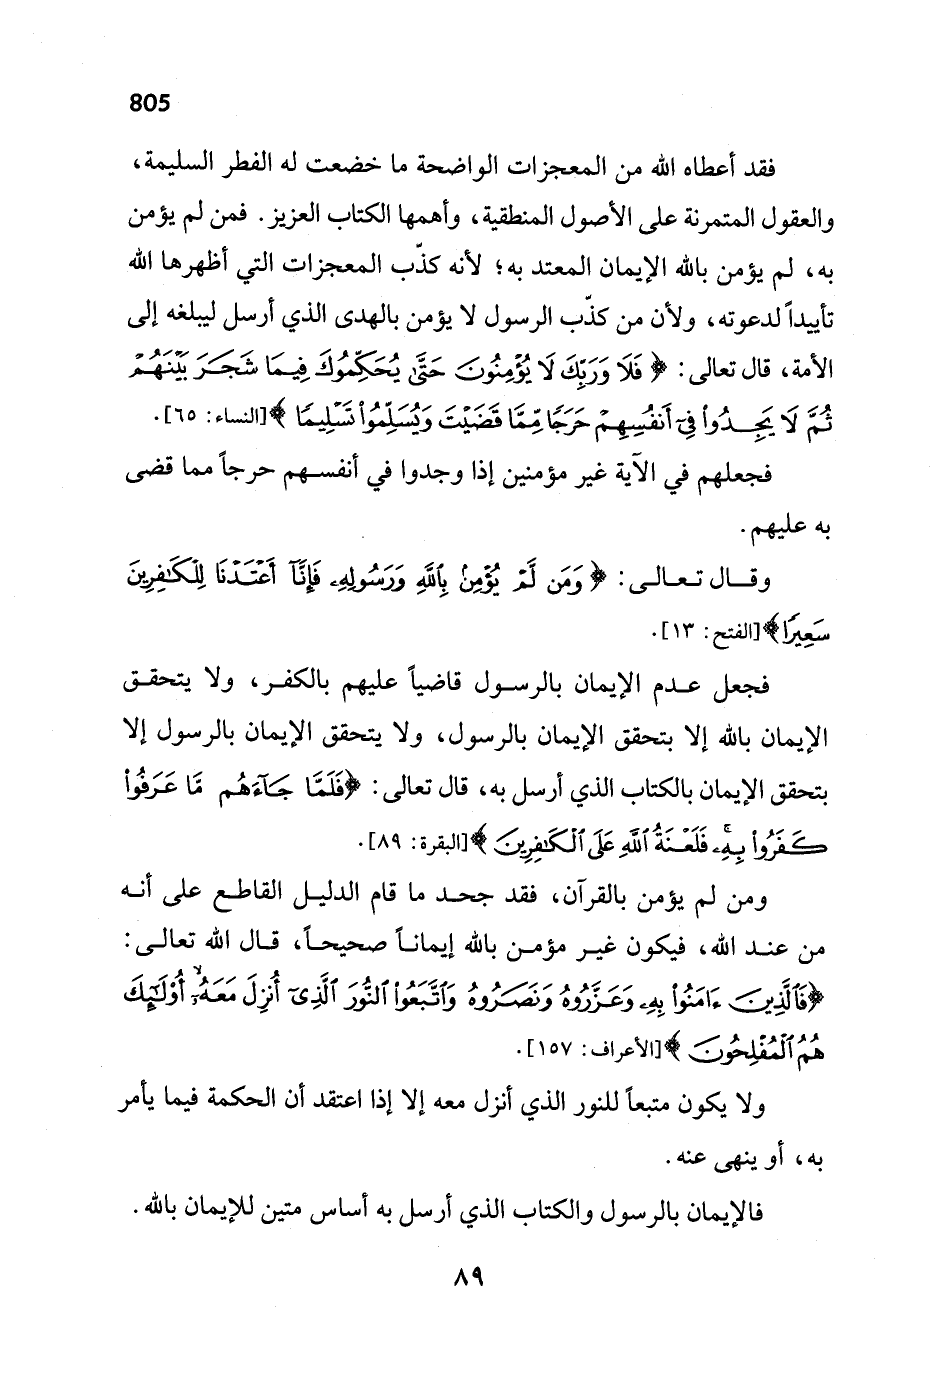 805
فقد أعطاه الله من المعجزات الواضحة ما خضعت له الفطر السليمة،
والعقول المتمرنة على الأصول المنطقية، وأهمها الكتاب العزيز. فمن لم يؤمن
به، لم يؤمن بالله الإيمان المعتد به؛ لأنه كذّب المعجزات التي أظهرها الله
تأييداً لدعوته، ولأن من كذّب الرسول لا يؤمن بالهدى الذي أرسل ليبلغه إلى
الأمة، قال تعالى: ﴿ فَلَا وَرَبِّكَ لَا يُؤْمِنُونَ حَتَّىٰ يُحَكِّمُوكَ فِيمَا شَجَرَ بَيْنَهُمْ
ثُمَّ لَا يَجِدُوا۟ فِىٓ أَنفُسِهِمْ حَرَجًا مِّمَّا قَضَيْتَ وَيُسَلِّمُوا۟ تَسْلِيمًا ﴾[النساء: ٦٥].
فجعلهم في الآية غير مؤمنين إذا وجدوا في أنفسهم حرجاً مما قضى
به عليهم.
وقال تعالى: ﴿ وَمَن لَّمْ يُؤْمِنۢ بِٱللَّهِ وَرَسُولِهِۦ فَإِنَّآ أَعْتَدْنَا لِلْكَٰفِرِينَ
سَعِيرًا﴾[الفتح: ١٣].
فجعل عدم الإيمان بالرسول قاضياً عليهم بالكفر، ولا يتحقق
الإيمان بالله إلا بتحقق الإيمان بالرسول، ولا يتحقق الإيمان بالرسول إلا
بتحقق الإيمان بالكتاب الذي أرسل به، قال تعالى: ﴿فَلَمَّا جَآءَهُم مَّا عَرَفُوا۟
كَفَرُوا۟ بِهِۦۚ فَلَعْنَةُ ٱللَّهِ عَلَى ٱلْكَٰفِرِينَ ﴾[البقرة: ٨٩].
ومن لم يؤمن بالقرآن، فقد جحد ما قام الدليل القاطع على أنه
من عند الله، فيكون غير مؤمن بالله إيماناً صحيحاً، قال الله تعالى:
﴿فَٱلَّذِينَ ءَامَنُوا۟ بِهِۦ وَعَزَّرُوهُ وَنَصَرُوهُ وَٱتَّبَعُوا۟ ٱلنُّورَ ٱلَّذِىٓ أُنزِلَ مَعَهُۥٓۙ أُو۟لَٰٓئِكَ
هُمُ ٱلْمُفْلِحُونَ ﴾[الأعراف: ١٥٧].
ولا يكون متبعاً للنور الذي أنزل معه إلا إذا اعتقد أن الحكمة فيما يأمر
به، أو ينهى عنه.
فالإيمان بالرسول والكتاب الذي أرسل به أساس متين للإيمان بالله.
٨٩